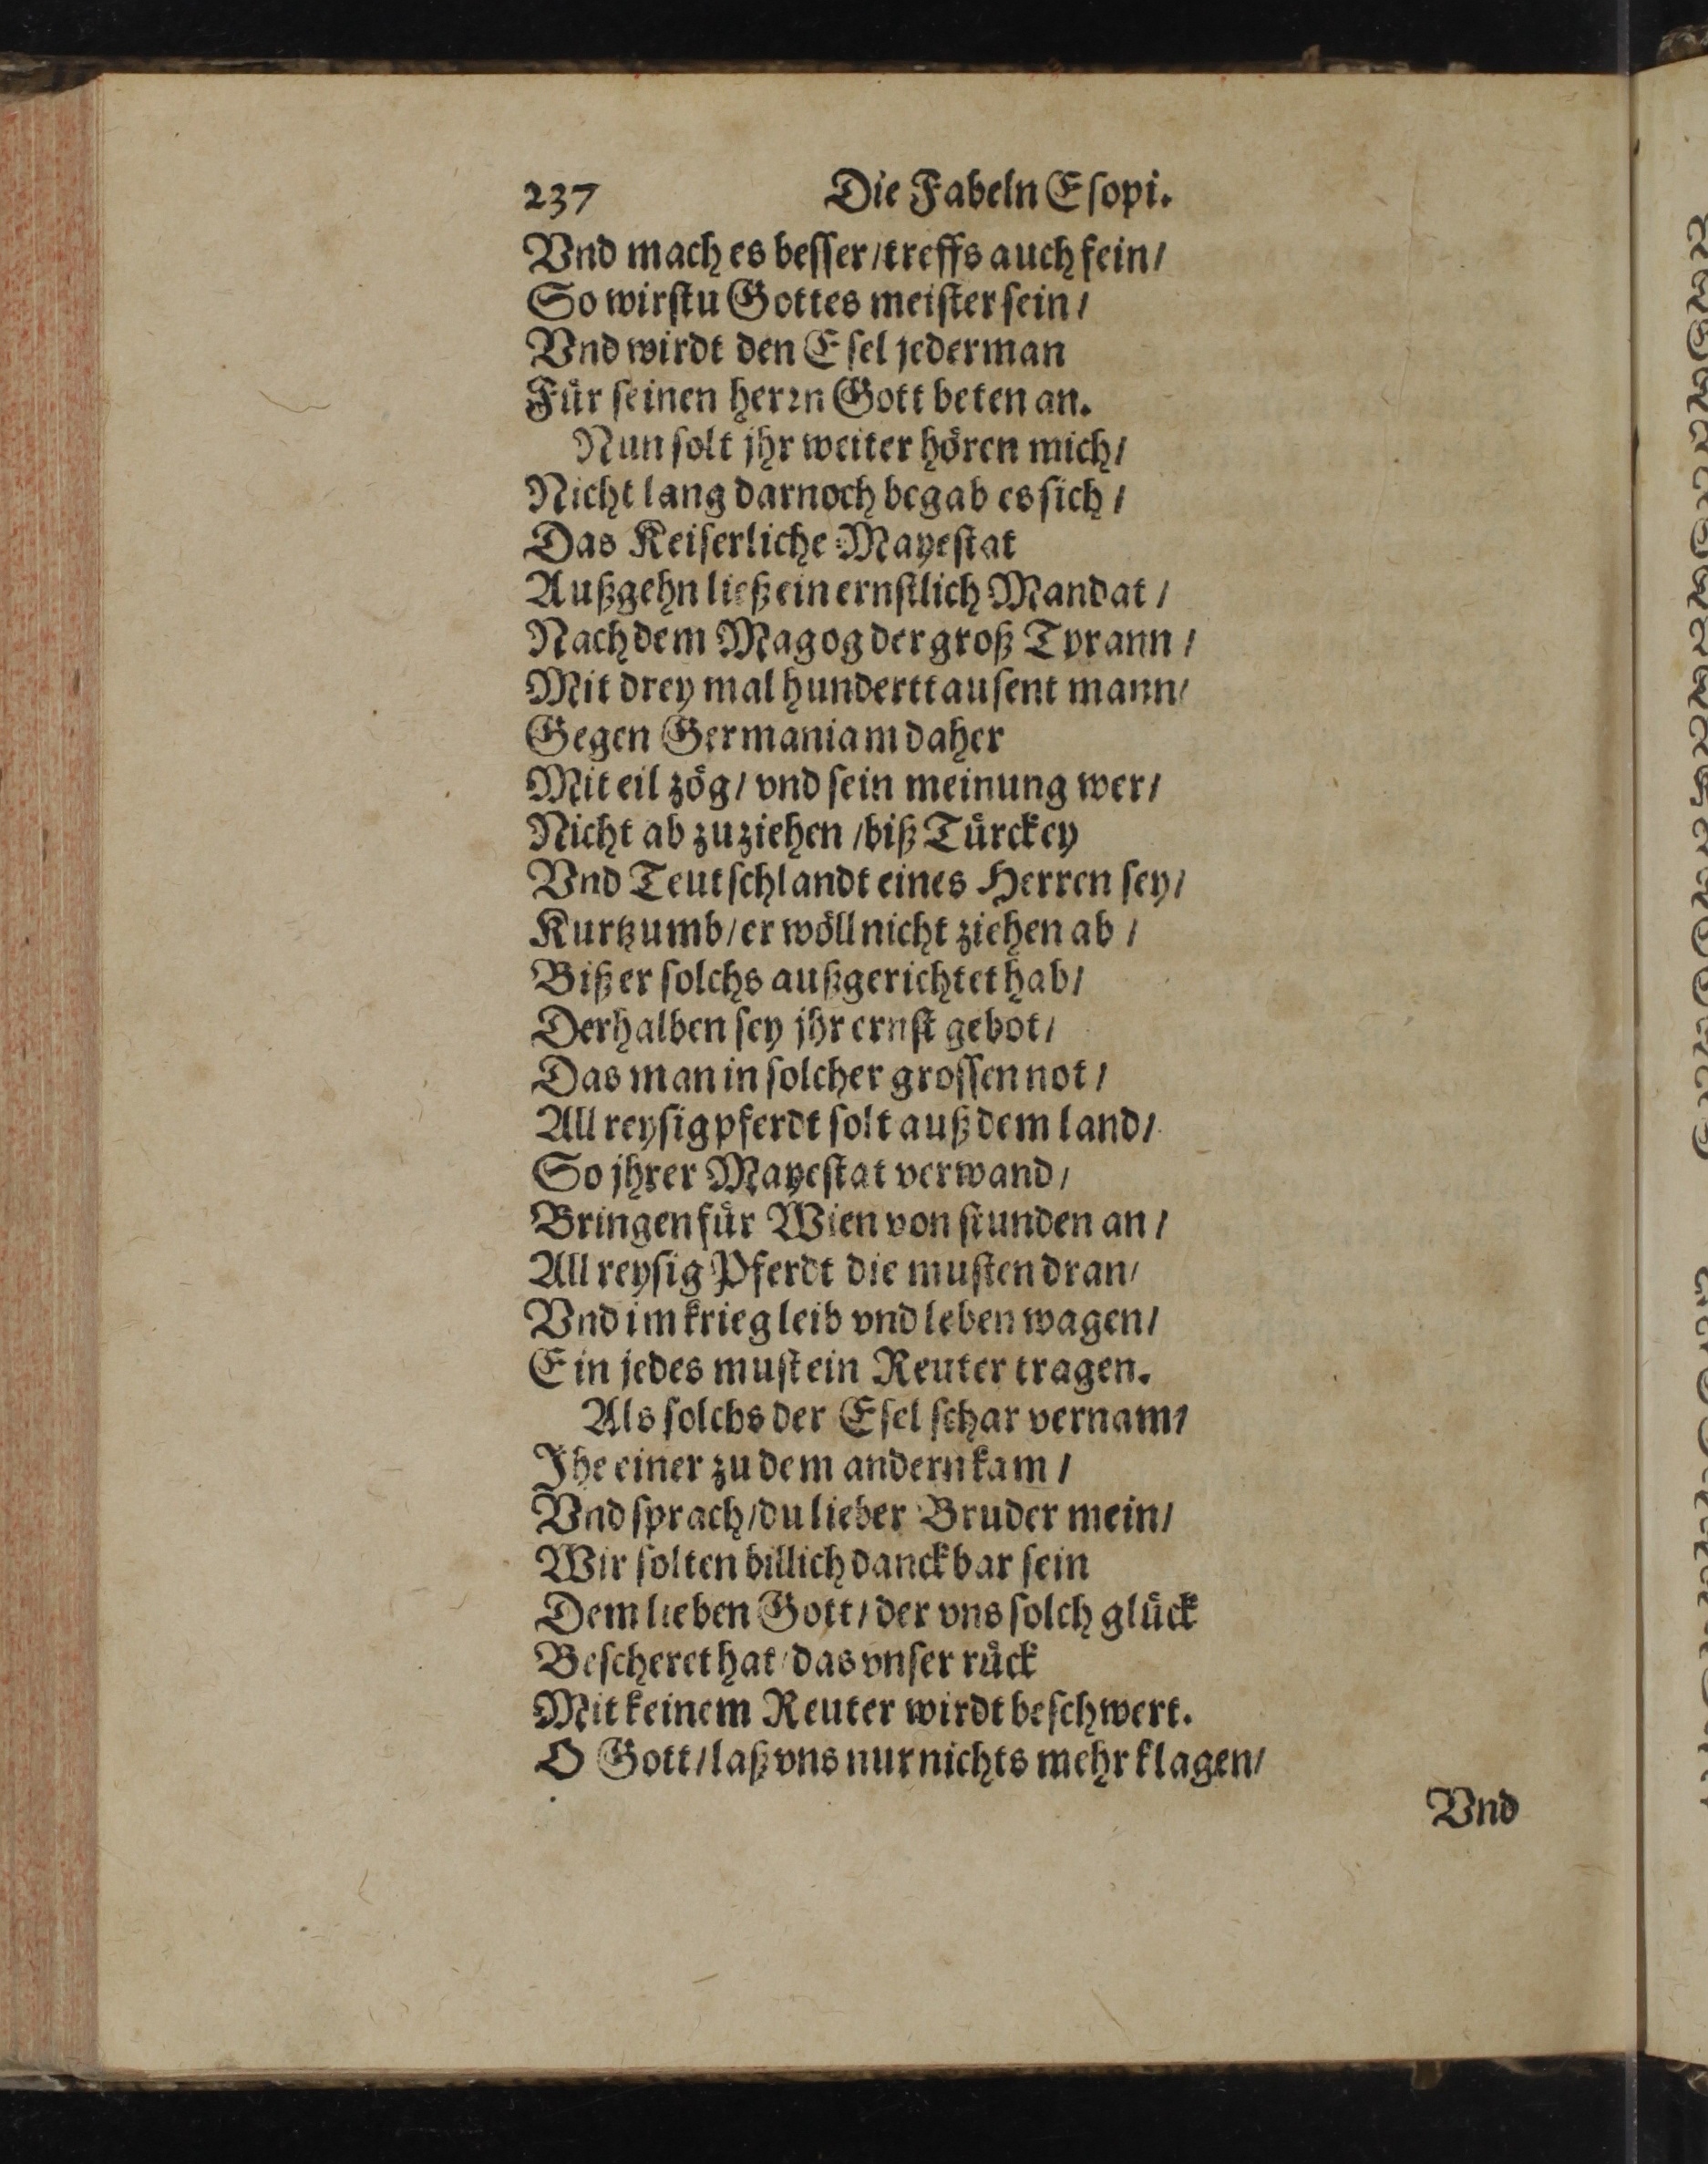 237 Die Fabeln Eſopi.
Vnd mach es beſſer / treffs auch fein /
So wirſtu Gottes meiſter ſein /
Vnd wirdt den Eſel jederman
Für ſeinen herꝛn Gott beten an.
Nun ſolt jhr weiter hören mich /
Nicht lang darnoch begab es ſich /
Das Keiſerliche Mayeſtat
Außgehn ließ ein ernſtlich Mandat /
Nach dem Magog der groß Tyrann /
Mit drey mal hunderttauſent mann /
Gegen Germaniam daher
Mit eil zög / vnd ſein meinung wer /
Nicht ab zuziehen / biß Türckey
Vnd Teutſchlandt eines Herren ſey /
Kurtzumb / er wöll nicht ziehen ab /
Biß er ſolchs außgerichtet hab /
Derhalben ſey jhr ernſt gebot /
Das man in ſolcher groſſen not /
All reyſig pferdt ſolt auß dem land /
So jhrer Mayeſtat verwand /
Bringen für Wien von ſtunden an /
All reyſig Pferdt die muſten dran /
Vnd im krieg leib vnd leben wagen /
Ein jedes muſt ein Reuter tragen.
Als ſolchs der Eſel ſchar vernam /
Jhe einer zu dem andern kam /
Vnd ſprach / du lieber Bruder mein /
Wir ſolten billich danckbar ſein
Dem lieben Gott / der vns ſolch glück
Beſcheret hat / das vnſer rück
Mit keinem Reuter wirdt beſchwert.
O Gott / laß vns nur nichts mehr klagen /
Vnd